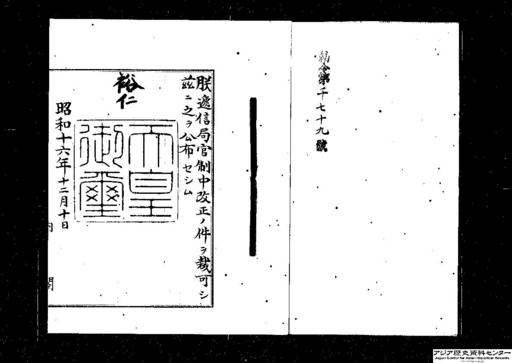 勅令第千七十九號
朕遞信局官制中改正ノ件ヲ裁可シ
茲ニ之ヲ公布セシム
裕仁
天皇
御璽
昭和十六年十二月十日
内閣
アジア歴史資料センター
Japan Center for Asian Historical Records